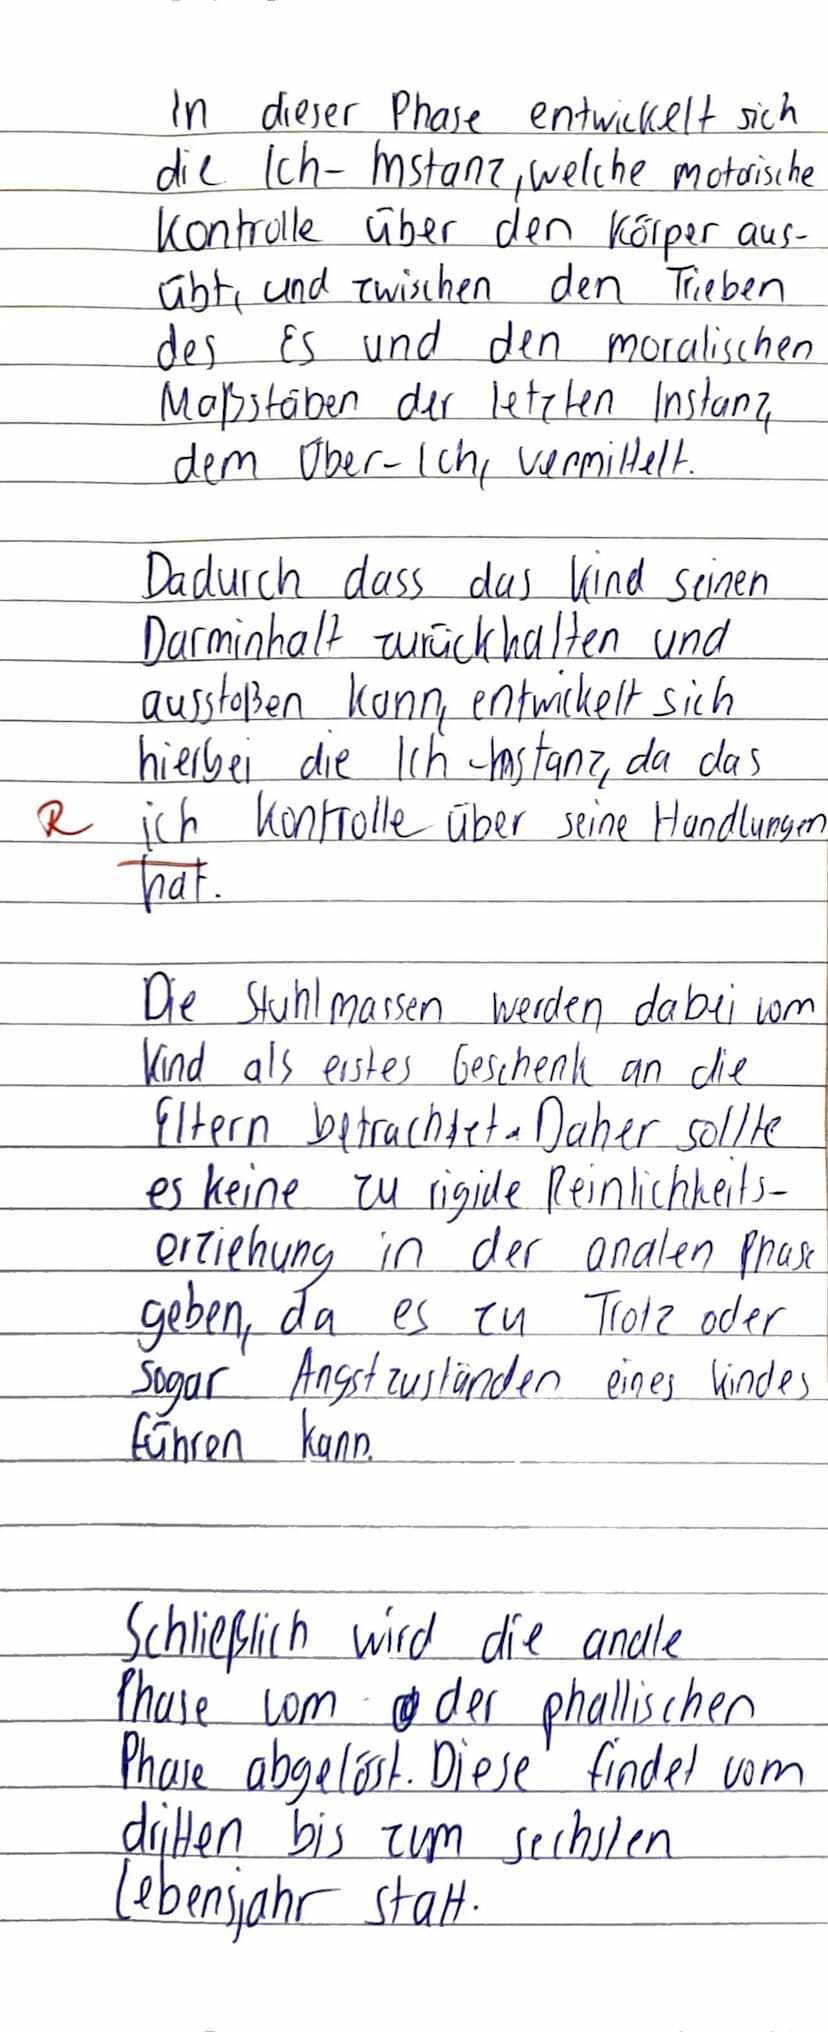 In dieser Phase entwickelt sich
die Ich-Instanz, welche motorische
Kontrolle über den Körper aus-
übt, und zwischen den Trieben
des Es und den moralischen
Maßstäben der letzten Instanz,
dem Über-Ich, vermittelt.
Dadurch dass das Kind seinen
Darminhalt zurückhalten und
ausstoßen kann, entwickelt sich
hierbei die Ich-Instanz, da das
R ich Kontrolle über seine Handlungen
hat.
Die Stuhlmassen werden dabei vom
Kind als erstes Geschenk an die
Eltern betrachtet. Daher sollte
es keine zu rigide Reinlichkeits-
erziehung in der analen Phase
geben, da es zu Trotz oder
sogar Angstzuständen eines Kindes
führen kann.
Schließlich wird die anale
Phase vom der phallischen
Phase abgelöst. Diese findet vom
dritten bis zum sechsten
Lebensjahr statt.